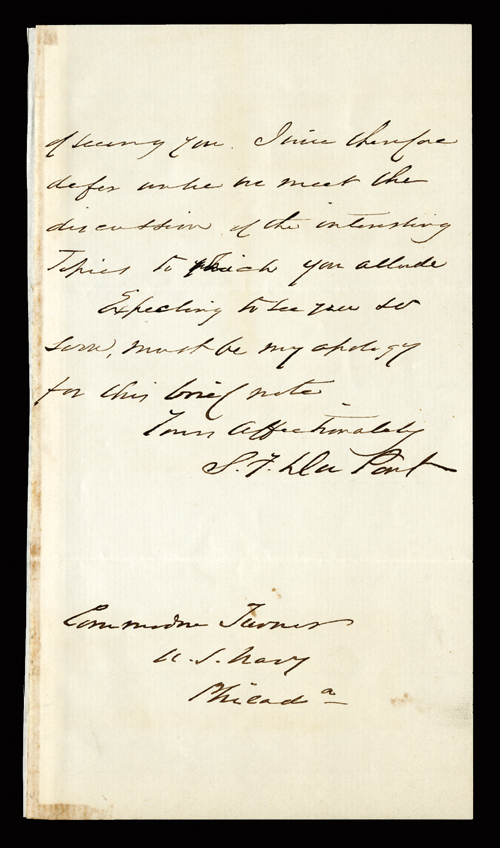 of seeing you. I will therefore
defer until we meet the
discussion of the interesting
Topics to which you allude
Expecting to see you so
soon, must be my apology
for this brief note.
Yours Affectionately
S. F. Du Pont
Commodore Turner
U. S. Navy
Philad a